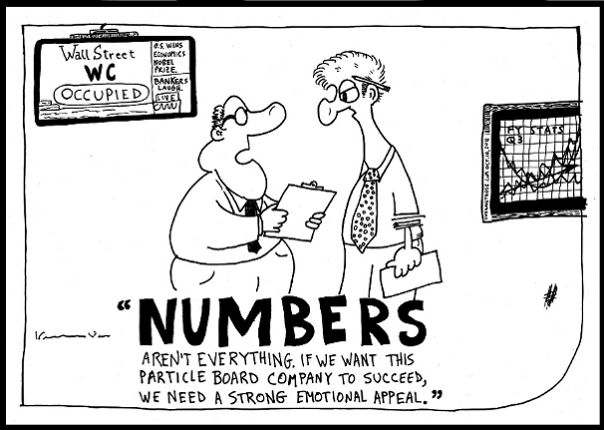 Wall Street
WC
OCCUPIED
U.S. WINS
ECONOMICS
NOBEL
PRIZE
BANKERS
LAUGH
LIVE!
FY STATS
Q3
"NUMBERS
AREN'T EVERYTHING. IF WE WANT THIS
PARTICLE BOARD COMPANY TO SUCCEED,
WE NEED A STRONG EMOTIONAL APPEAL."